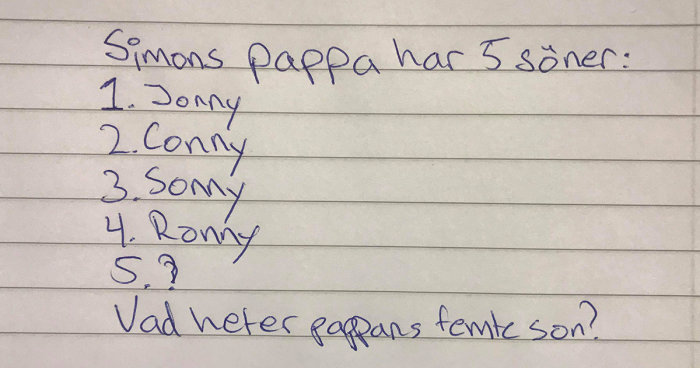 Simons pappa har 5 söner:
1. Jonny
2. Conny
3. Sonny
4. Ronny
5. ?
Vad heter pappans femte son?